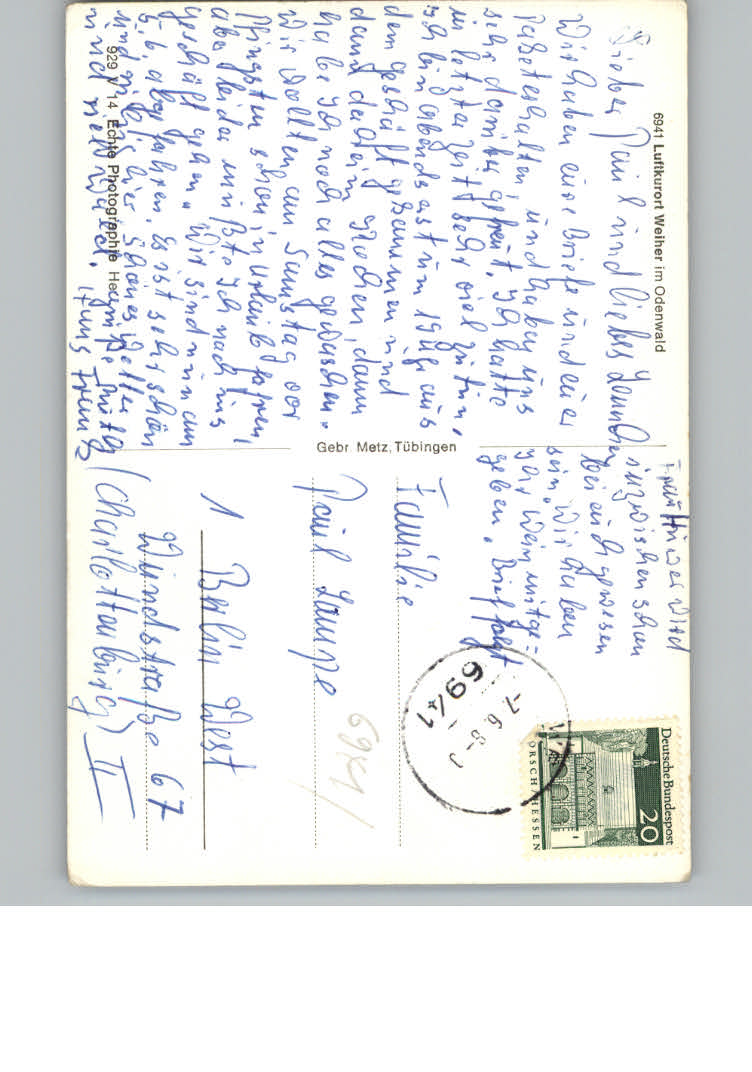 6941 Luftkurort Weiher im Odenwald
Lieber Paul und liebes Lenchen
Wir haben eure Briefe und euer
Paket erhalten und haben uns
sehr darüber gefreut. Ich hatte
in letzter Zeit sehr viel zu tun,
ich bin abends erst um 19 Uhr aus
dem Geschäft gekommen und
dann daheim Kochen, dann
habe ich noch alles gewaschen.
Wir wollten am Samstag vor
Pfingsten schon in Urlaub fahren,
aber leider mußte ich noch ins
Geschäft gehen. Wir sind nun am
5.6. abgefahren. Es ist sehr schön
und mild hier schönes Wetter
und
Grüße
Frau wird
inzwischen schon
bei euch gewesen
sein. Wir haben
ihr Wein mitge-
geben. Brief folgt
929 14 Echte Photographie
Gebr Metz, Tübingen
Familie
Paul Lampe
1 Berlin West
Wundstraße 67
(Charlottenburg) II
6941
6941
-7.6.
Deutsche Bundespost
20
LORSCH/HESSEN